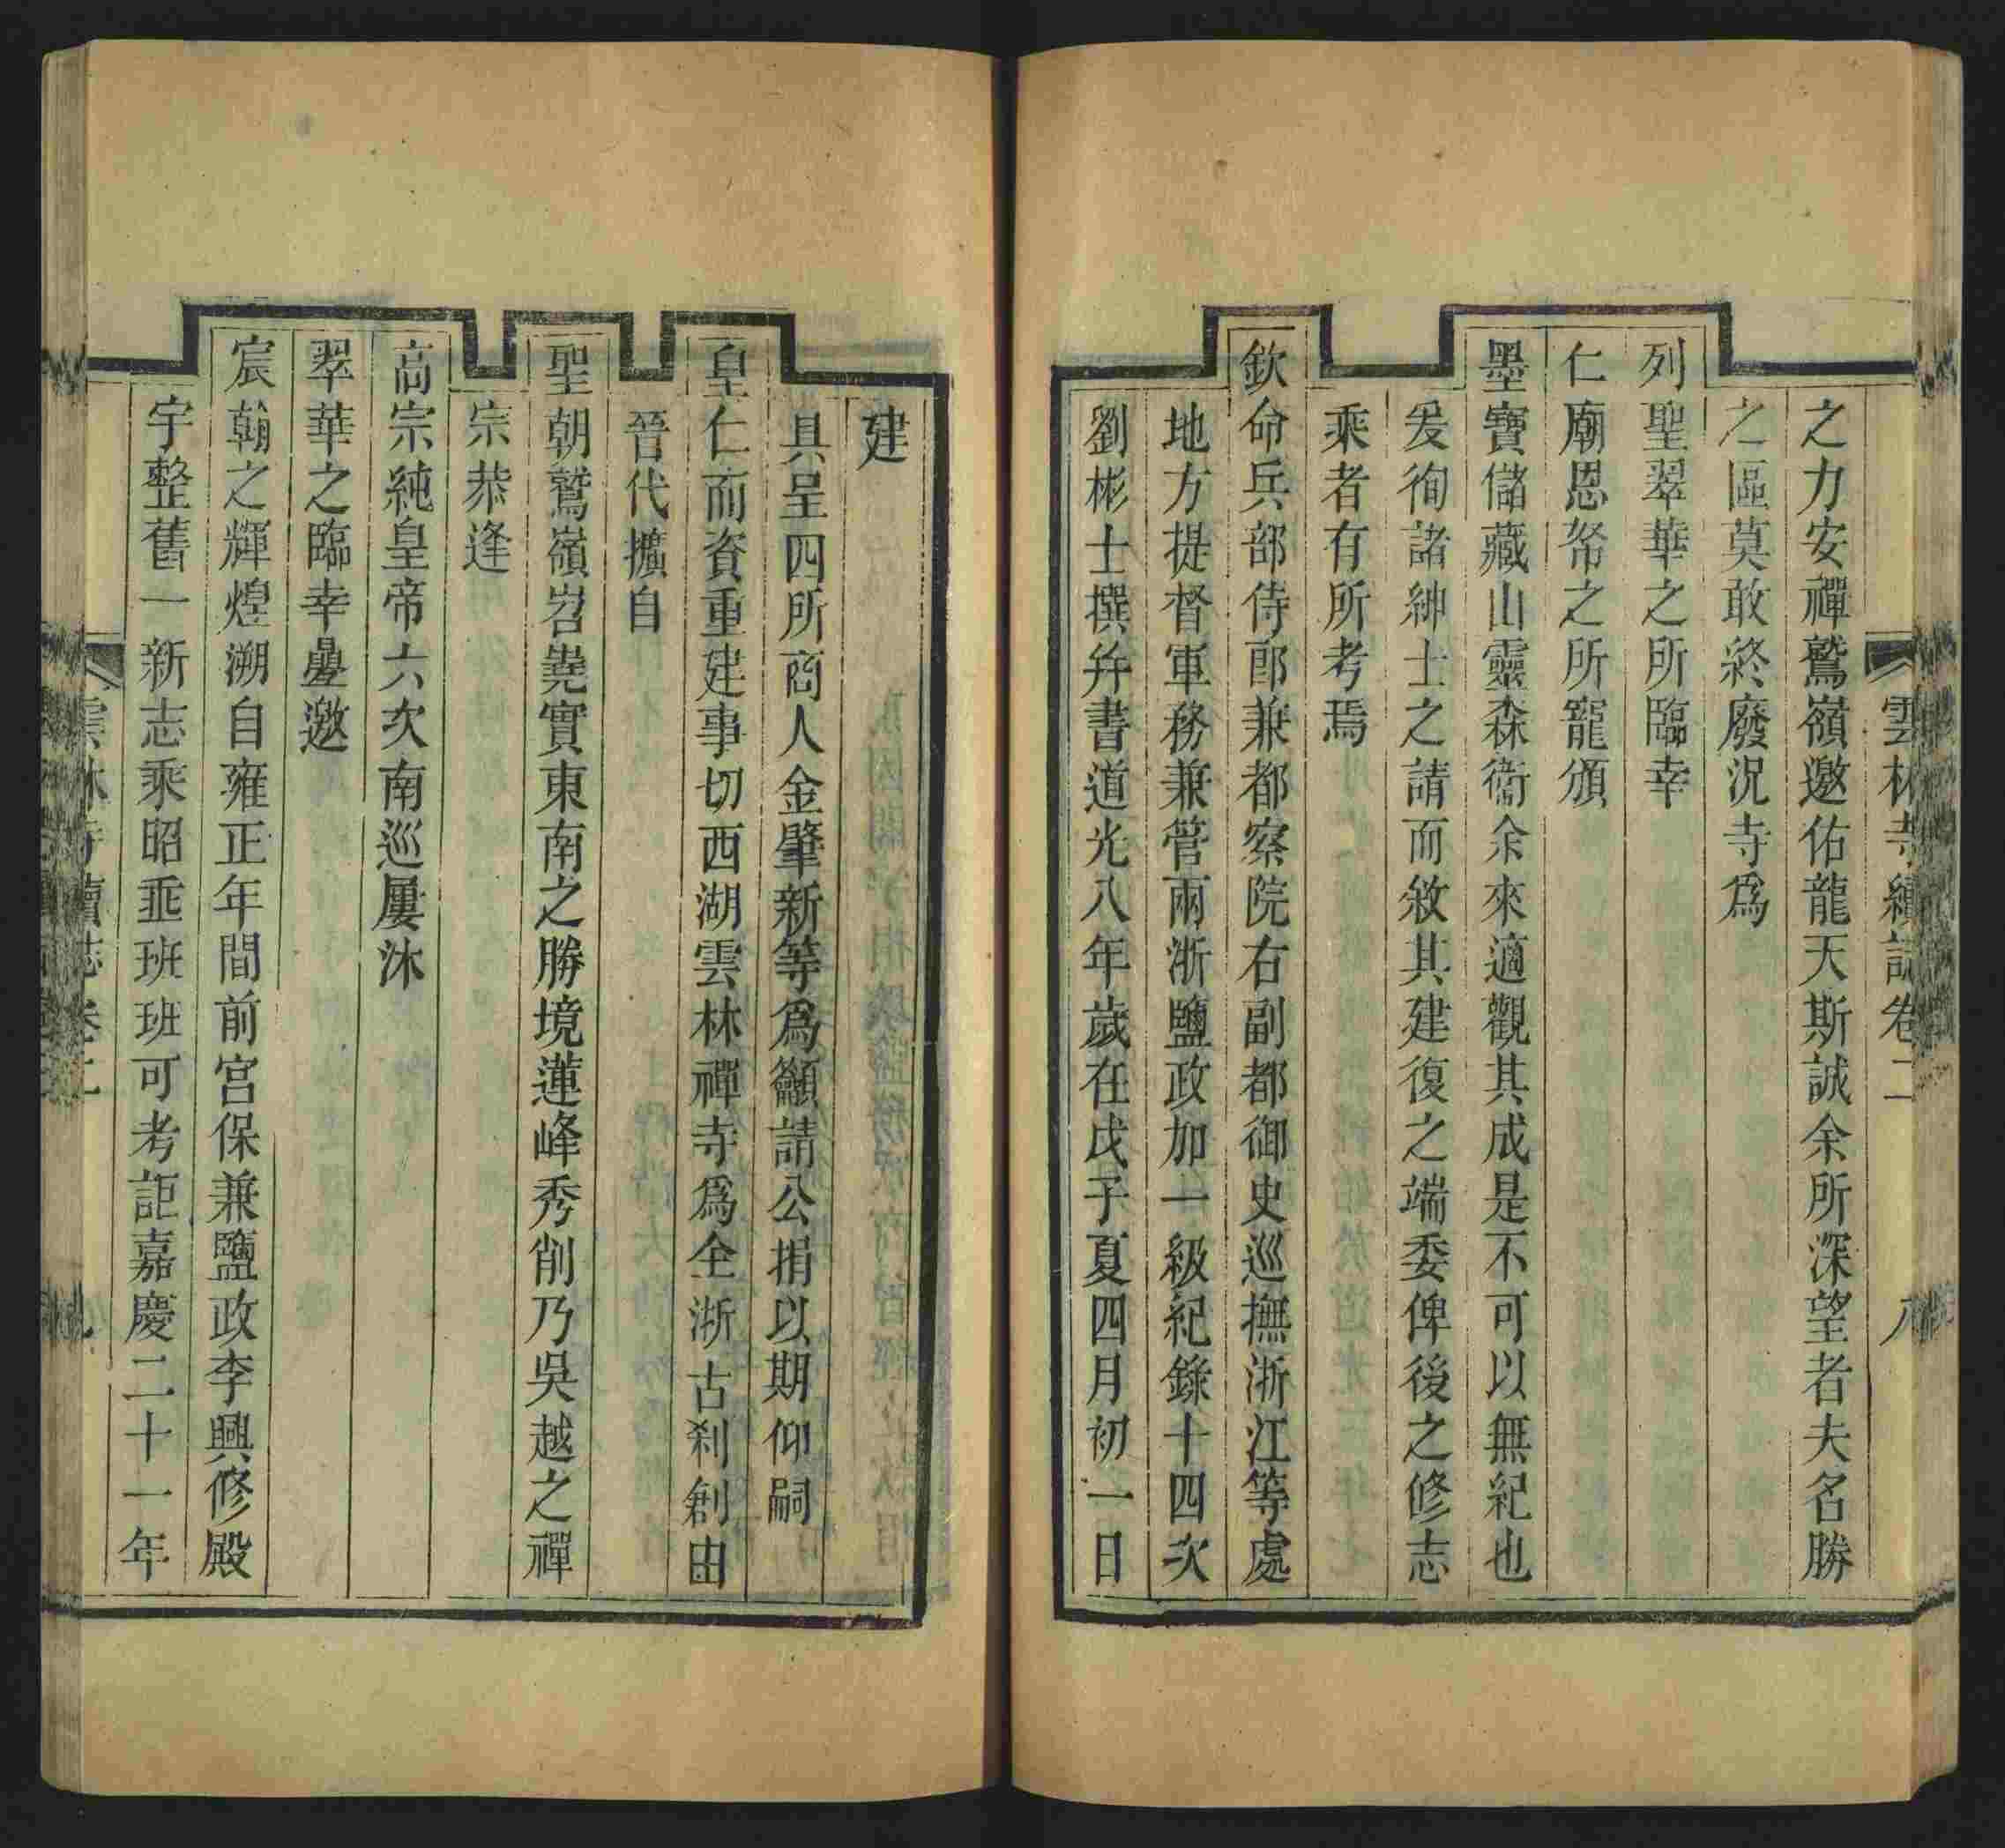 雲林寺續志卷二 八
之力安禪鷲嶺邀佑龍天斯誠余所深望者夫名勝
之區莫敢終廢況寺爲
列聖翠華之所臨幸
仁廟恩帑之所寵頒
墨寶儲藏山靈森衞余來適觀其成是不可以無紀也
爰徇諸紳士之請而敘其建復之端委俾後之修志
乘者有所考焉
欽命兵部侍郎兼都察院右副都御史巡撫浙江等處
地方提督軍務兼管兩浙鹽政加一級紀錄十四次
劉彬士撰幷書道光八年歲在戊子夏四月初一日
建
具呈四所商人金肇新等爲籲請公捐以期仰嗣
皇仁而資重建事切西湖雲林禪寺爲全浙古刹創由
晉代擴自
聖朝鷲嶺岧嶤實東南之勝境蓮峰秀削乃吳越之禪
宗恭逢
高宗純皇帝六次南巡屢沐
翠華之臨幸曡邀
宸翰之輝煌溯自雍正年間前宮保兼鹽政李興修殿
宇整舊一新志乘昭垂班班可考詎嘉慶二十一年
雲林寺續志卷二 九